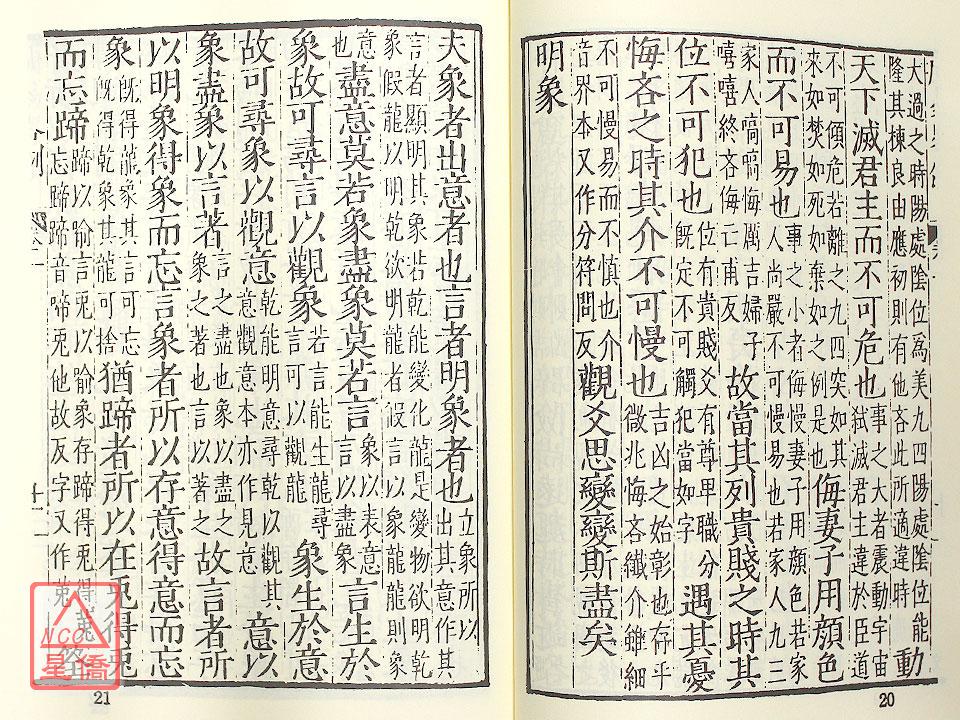 大過之時陽處陰位為美九四陽處陰位能
隆其棟良由應初則有他吝此所適違時
動
天下滅君主而不可危也
事之大者震動宇宙
弒滅君主違於臣道
不可傾危若離之九四突如其
來如焚如死如棄如之例是也
侮妻子用顏色
而不可易也
事之小者侮慢妻子用顏色若家
人尚嚴不可慢易也若家人九三
家人嗃嗃悔厲吉婦子
嘻嘻終吝侮亡甫反
故當其列貴賤之時其
位不可犯也
位有貴賤爻有尊卑職分
既定不可觸犯當如字
遇其憂
悔吝之時其介不可慢也
吉凶之始彰也存乎
微兆悔吝纖介雖細
不可慢易而不慎也介
音界本又作分符問反
觀爻思變變斯盡矣
明象
20
夫象者出意者也言者明象者也
立象所以
出其意作其
言者顯明其象若乾能變化龍是變物欲明乾
象假龍以明乾欲明龍者假言以象龍龍則象
意
也
盡意莫若象盡象莫若言
象以表意
言以盡象
言生於
象故可尋言以觀象
若言能生龍尋
言可以觀龍
象生於意
故可尋象以觀意
乾能明意尋乾以觀其
意觀意本亦作見意
意以
象盡象以言著
言之盡也象以盡之
象之著也言以著之
故言者所
以明象得象而忘言象者所以存意得意而忘
象
既得龍象其言可忘
既得乾象其龍可捨
猶蹄者所以在兔得兔
而忘蹄
蹄以喻言兔以喻象存蹄得兔得
忘蹄蹄音啼兔他故反字又作菟
十一
21
NCC
星僑